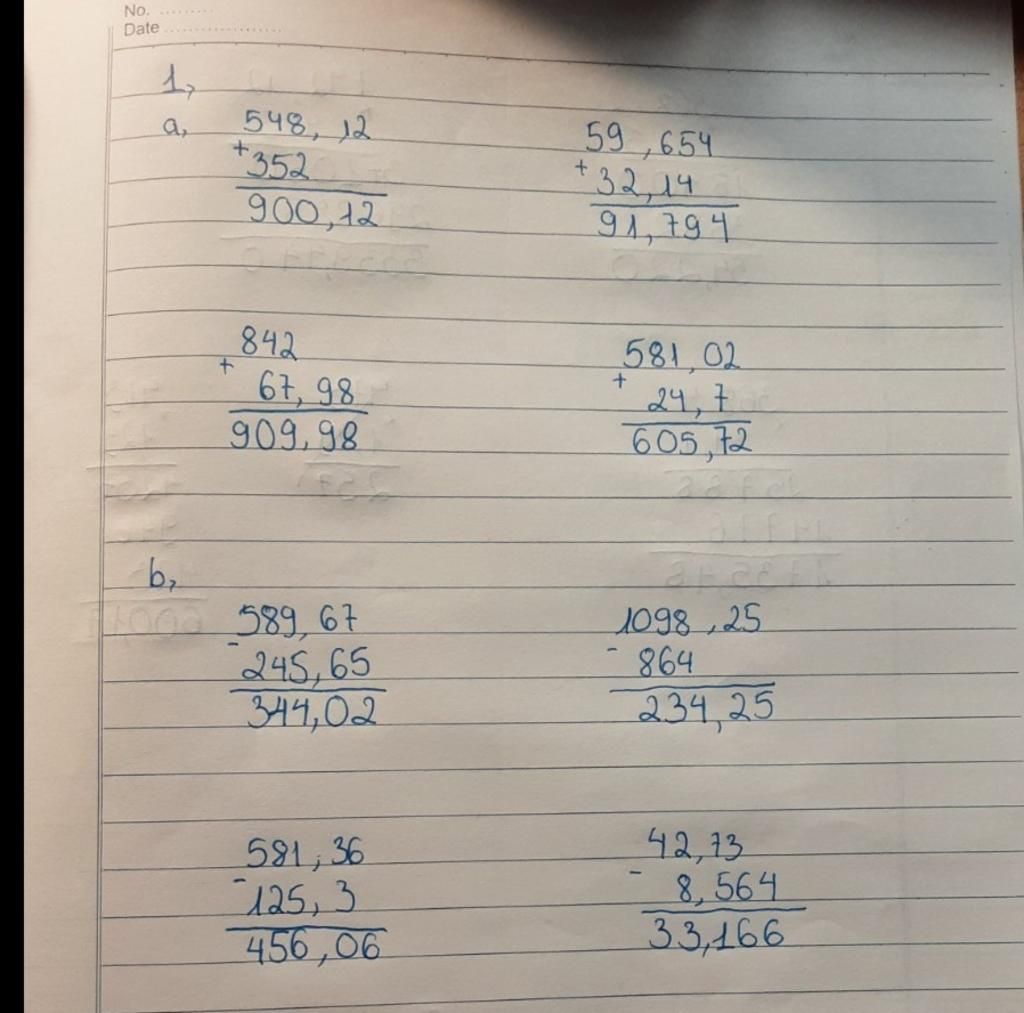 No. ..........
Date ......................
1,
a,
548, 12
+
352
900,12
59,654
+
32,14
91,794
842
+
67,98
909,98
581,02
+
24,7
605,72
b,
589,67
-
245,65
344,02
1098,25
-
864
234,25
581,36
-
125,3
456,06
42,73
-
8,564
33,166